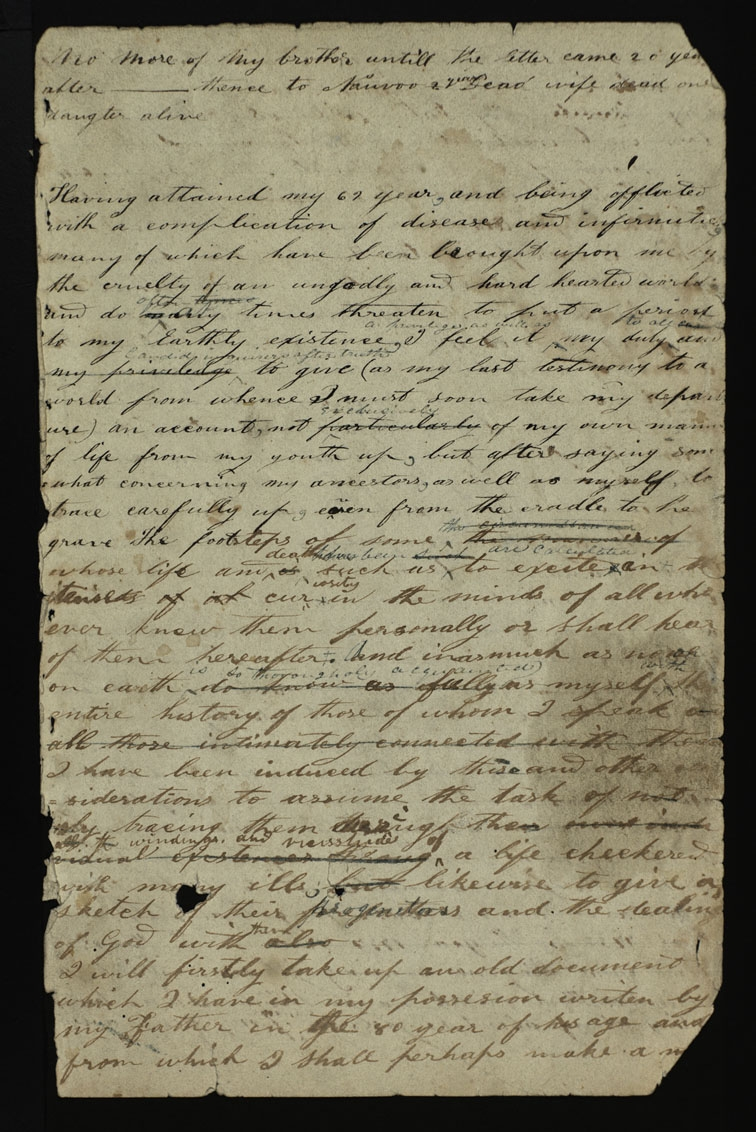 No more of my brother untill the letter came 20 yea
after —— thence to Nauvoo 2 years Dead wife dead one
daugter alive
Having attained my 69 year, and being afflicted
with a complication of disease and infirmitie
many of which have been brought upon me by
the cruelty of an ungodly and hard hearted world
often
and do many times threaten to put a period
a privilege as well as
to my Earthly existence, I feel it my duty and
candid inquirers after truth
my priviledge to give (as my last testimony to a
world from whence I must soon take my depart
exclusively
ure) an account, not particularly of my own mann
of life from my youth up, but after saying som
what concerning my ancestors, as well as myself, to
trace carefully up, even from the cradle to the
the circumstances
grave the footsteps of some, the of
death have been such are calculated
whose life and is such as to excite an in
iosity
itenses of cur in the minds of all who
ever knew them personally or shall hear
of them hereafter. And inasmuch as no
is so thoroughly acquainted with
on earth do know as fully as myself the
entire history of those of whom I speak
all those intimately connected with them
I have been induced by these and other con
=siderations to assume the task of not
tracing them through their own indi
all the windings and vicissitudes of
vidual existences a life checkered
with many ills, but likewise to give a
sketch of their progenitors and the dealing
them
of God with also
I will firstly take up an old document
which I have in my possesion writen by
my Father in the 80 year of his age and
from which I shall perhaps make a